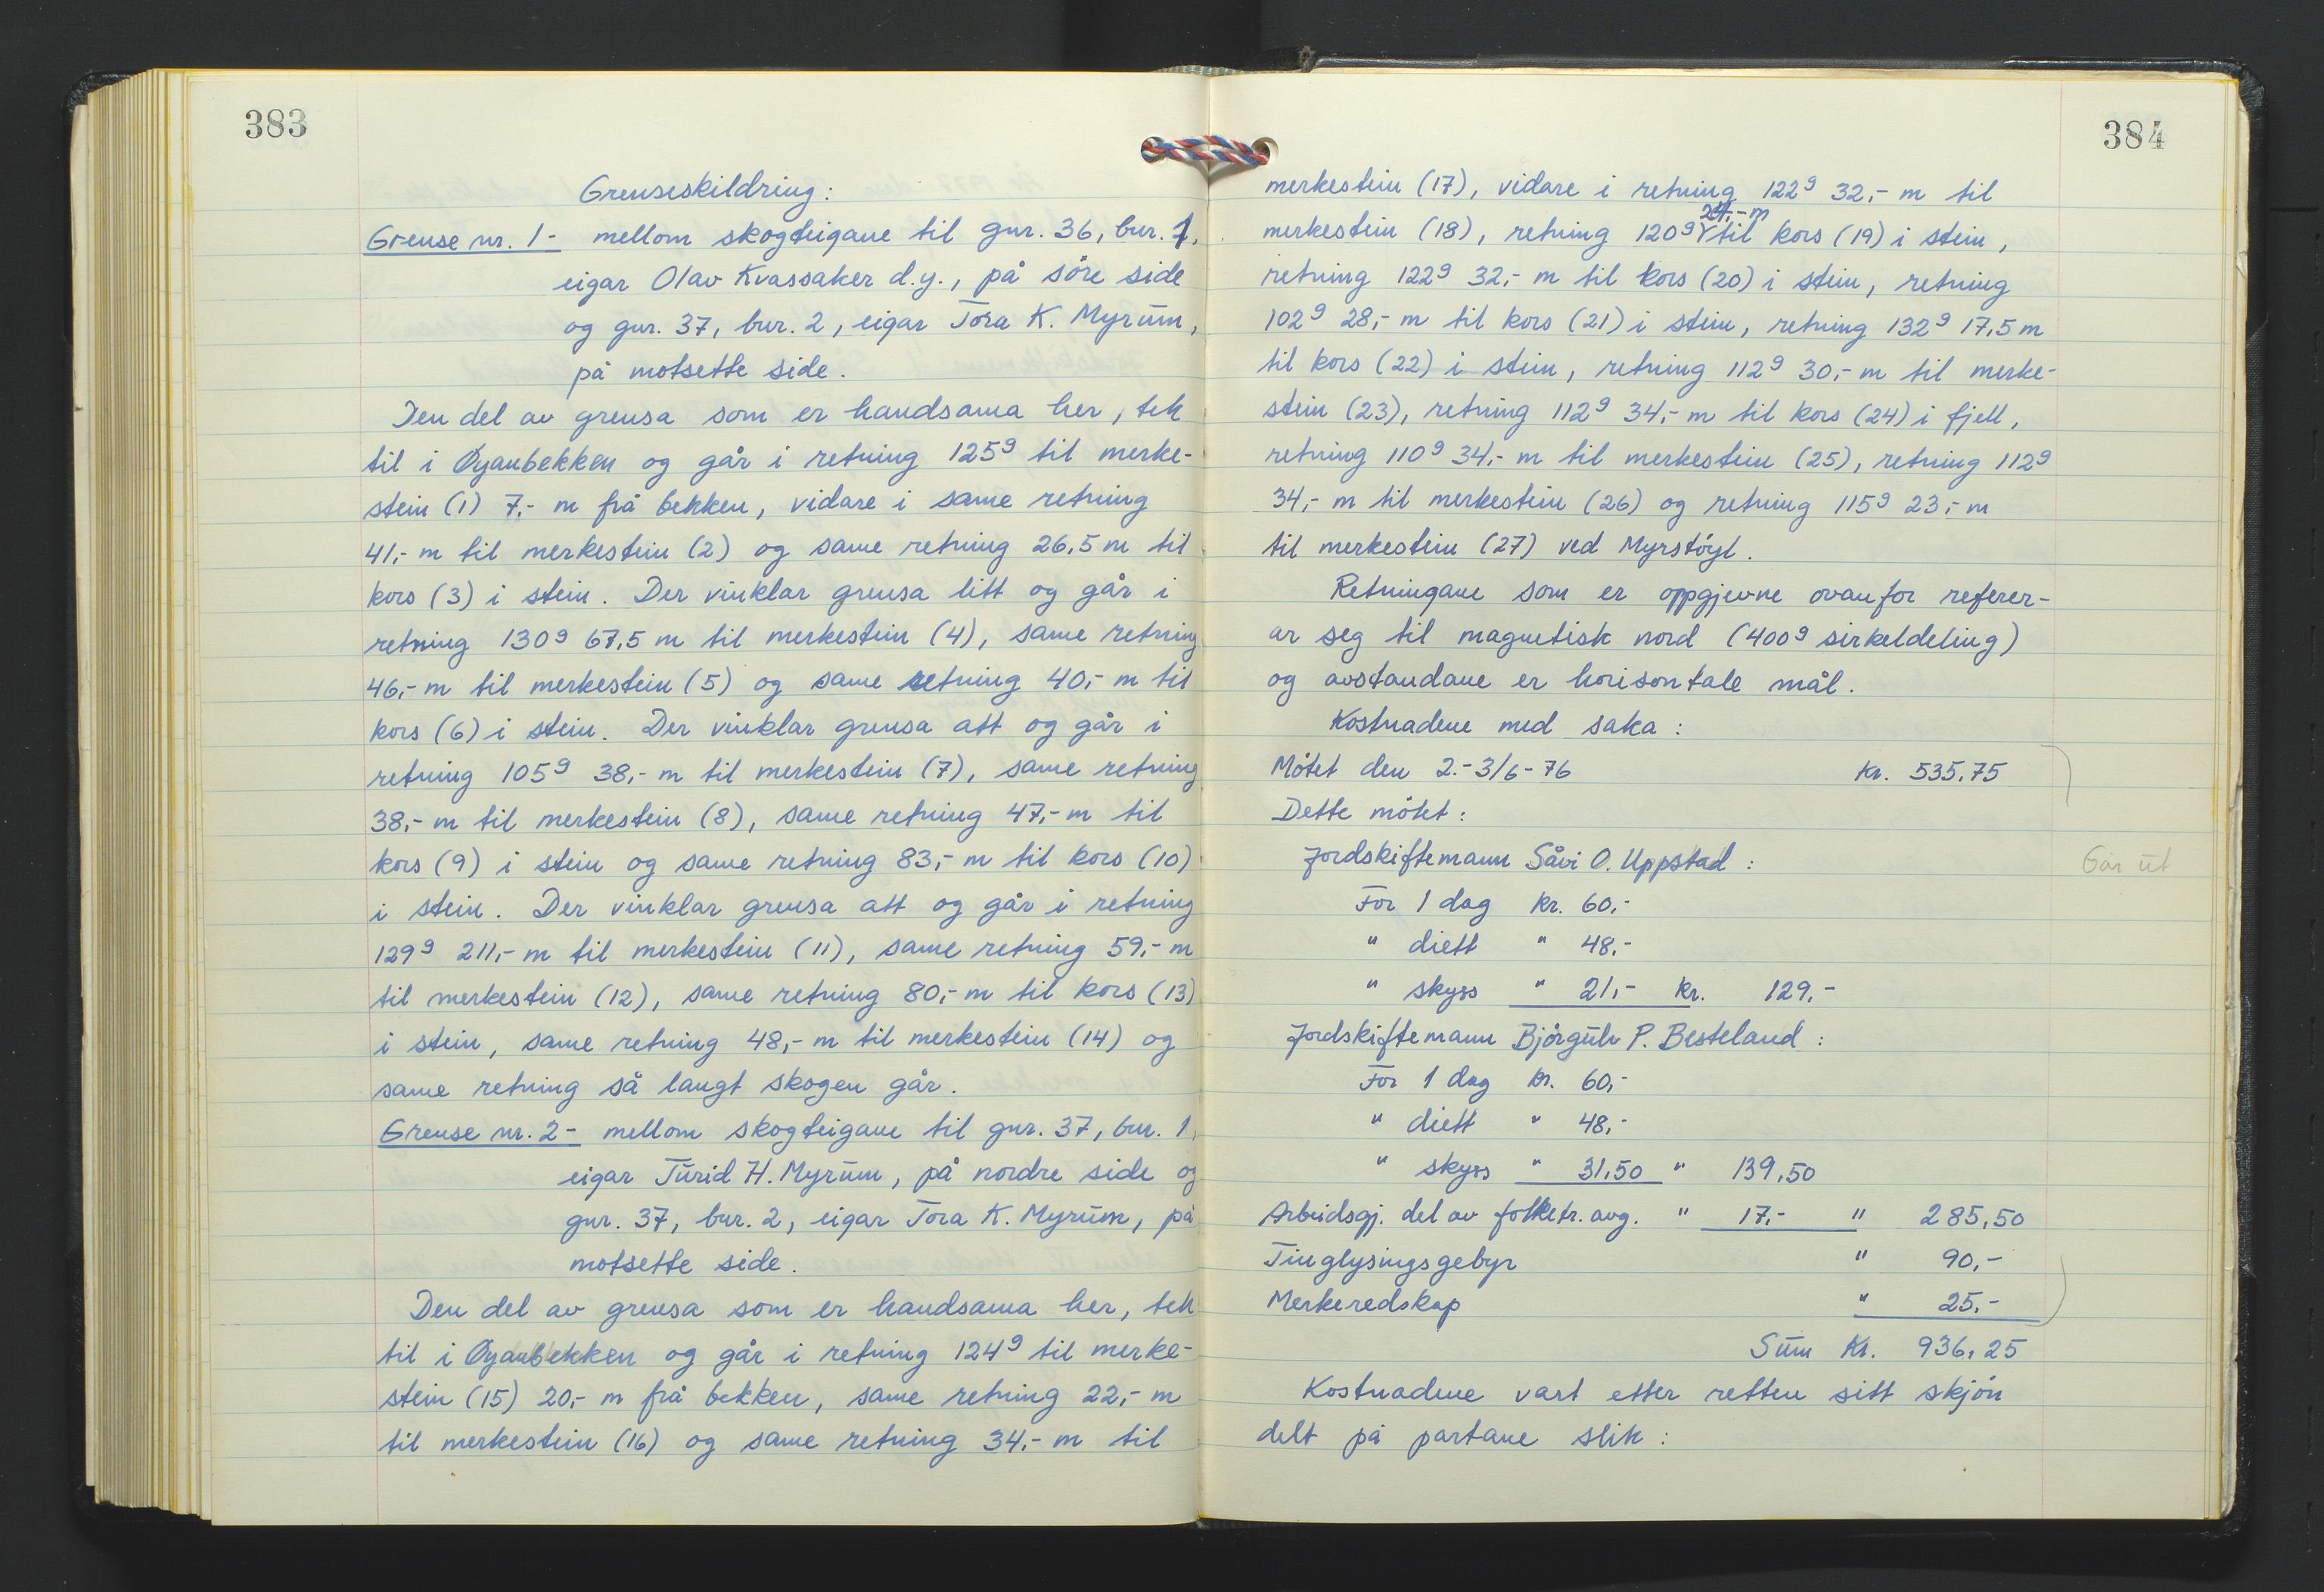 383
Grenseskildring:
Grense nr. 1- mellom skogteigane til gnr. 36, bnr. 1,
eigar Olav Kvassaker d.y., på søre side
og gnr. 37, bnr. 2, eigar Tora K. Myrum,
på motsette side.
Den del av grensa som er handsama her, tek
til i Øyanbekken og går i retning 125g til merke-
stein (1) 7,- m frå bekken, vidare i same retning
41,- m til merkestein (2) og same retning 26,5 m til
kors (3) i stein. Der vinklar grensa litt og går i
retning 130g 67,5 m til merkestein (4), same retning
46,- m til merkestein (5) og same retning 40,- m til
kors (6) i stein. Der vinklar grensa att og går i
retning 105g 38,- m til merkestein (7), same retning
38,- m til merkestein (8), same retning 47,- m til
kors (9) i stein og same retning 83,- m til kors (10)
i stein. Der vinklar grensa att og går i retning
129g 211,- m til merkestein (11), same retning 59,- m
til merkestein (12), same retning 80,- m til kors (13)
i stein, same retning 48,- m til merkestein (14) og
same retning så langt skogen går.
Grense nr. 2- mellom skogteigane til gnr. 37, bnr. 1,
eigar Turid H. Myrum, på nordre side og
gnr. 37, bnr. 2, eigar Tora K. Myrum, på
motsette side.
Den del av grensa som er handsama her, tek
til i Øyanbekken og går i retning 124g til merke-
stein (15) 20,- m frå bekken, same retning 22,- m
til merkestein (16) og same retning 34,- m til
384
merkestein (17), vidare i retning 122g 32,- m til
24,- m
merkestein (18), retning 120g til kors (19) i stein,
retning 122g 32,- m til kors (20) i stein, retning
102g 28,- m til kors (21) i stein, retning 132g 17,5 m
til kors (22) i stein, retning 112g 30,- m til merke-
stein (23), retning 112g 34,- m til kors (24) i fjell,
retning 110g 34,- m til merkestein (25), retning 112g
34,- m til merkestein (26) og retning 115g 23,- m
til merkestein (27) ved Myrstøyl.
Retningane som er oppgjevne ovanfor referer-
ar seg til magnetisk nord (400g sirkeldeling)
og avstandane er horisontale mål.
Kostnadene med saka:
Møtet den 2.-3/6-76 kr. 535,75
Dette møtet:
Jordskiftemann Såvi O. Uppstad:
Går ut
For 1 dag kr. 60,-
" diett " 48,-
" skyss " 21,- kr. 129,-
Jordskiftemann Bjørgulv P. Besteland:
For 1 dag kr. 60,-
" diett " 48,-
" skyss " 31,50 " 139,50
Arbeidsgj. del av folketr. avg. " 17,- " 285,50
Tinglysingsgebyr " 90,-
Merkeredskap " 25,-
Sum Kr. 936,25
Kostnadene vart etter retten sitt skjøn
delt på partane slik: